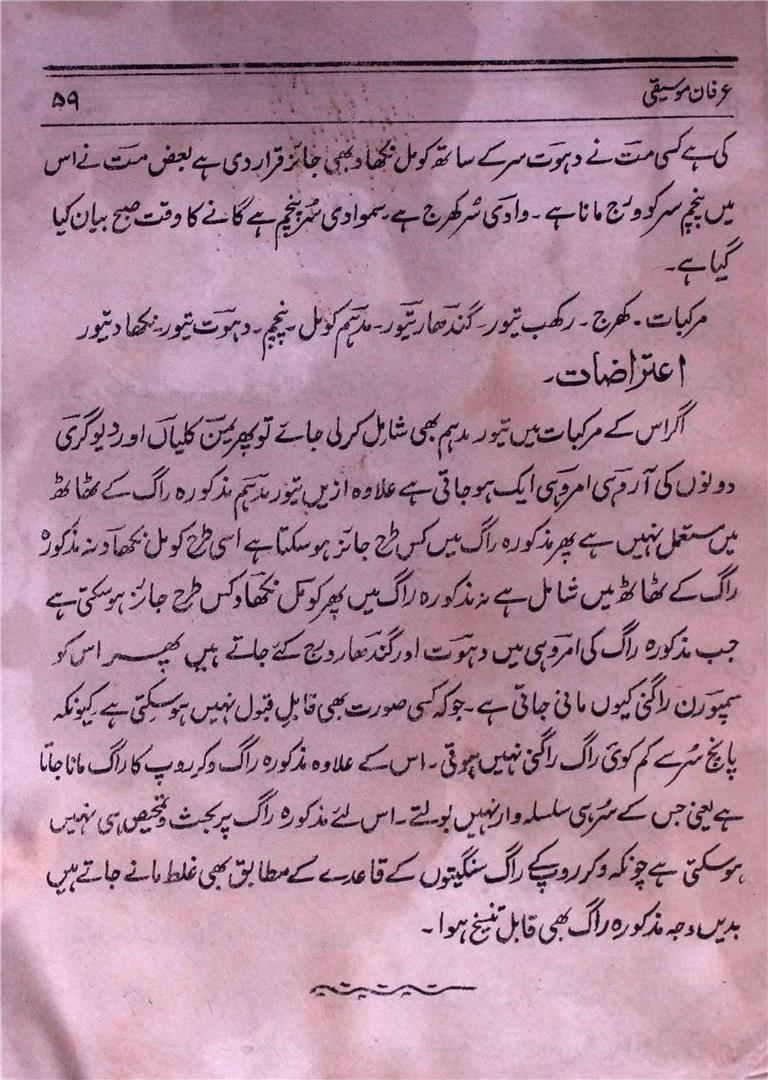 عرفان موسیقی
۵۹
کی ہے کسی مت نے دہوت سر کے ساتھ کومل نکھاد بھی جائز قرار دی ہے بعض مت نے اس
میں پنچم سر کو ورج مانا ہے۔ وادی سُر کھرج ہے سموادی سُر پنچم ہے گانے کا وقت صبح بیان کیا
گیا ہے۔
مرکبات۔ کھرج۔ رکھب تیور۔ گندھار تیور۔ مدہم کومل۔ پنچم۔ دہوت تیور۔ نکھاد تیور
اعتراضات۔
اگر اس کے مرکبات میں تیور مدہم بھی شامل کرلی جائے تو پھر یمن کلیاں اور دیوگری
دونوں کی آروہی امروہی ایک ہو جاتی ہے علاوہ ازیں تیور مدہم مذکورہ راگ کے ٹھاٹھ
میں مستعمل نہیں ہے پھر مذکورہ راگ میں کس طرح جائز ہو سکتا ہے اسی طرح کومل نکھاد نہ مذکورہ
راگ کے ٹھاٹھ میں شامل ہے نہ مذکورہ راگ میں پھر کومل نکھاد کس طرح جائز ہو سکتی ہے
جب مذکورہ راگ کی امروہی میں دہوت اور گندھار ورج کئے جاتے ہیں پھر اس کو
سمپورن راگنی کیوں مانی جاتی ہے۔ جو کہ کسی صورت بھی قابل قبول نہیں ہو سکتی ہے کیونکہ
پانچ سُر سے کم کوئی راگ راگنی نہیں ہوتی۔ اس کے علاوہ مذکورہ راگ وکر روپ کا راگ مانا جاتا
ہے یعنی جس کے سُر ہی سلسلہ وار نہیں بولتے۔ اس لئے مذکورہ راگ پر بحث و تمحیص ہی نہیں
ہو سکتی ہے چونکہ وکر روپ کے راگ سنگیتوں کے قاعدے کے مطابق بھی غلط مانے جاتے ہیں
بدیں وجہ مذکورہ راگ بھی قابل تنسیخ ہوا۔